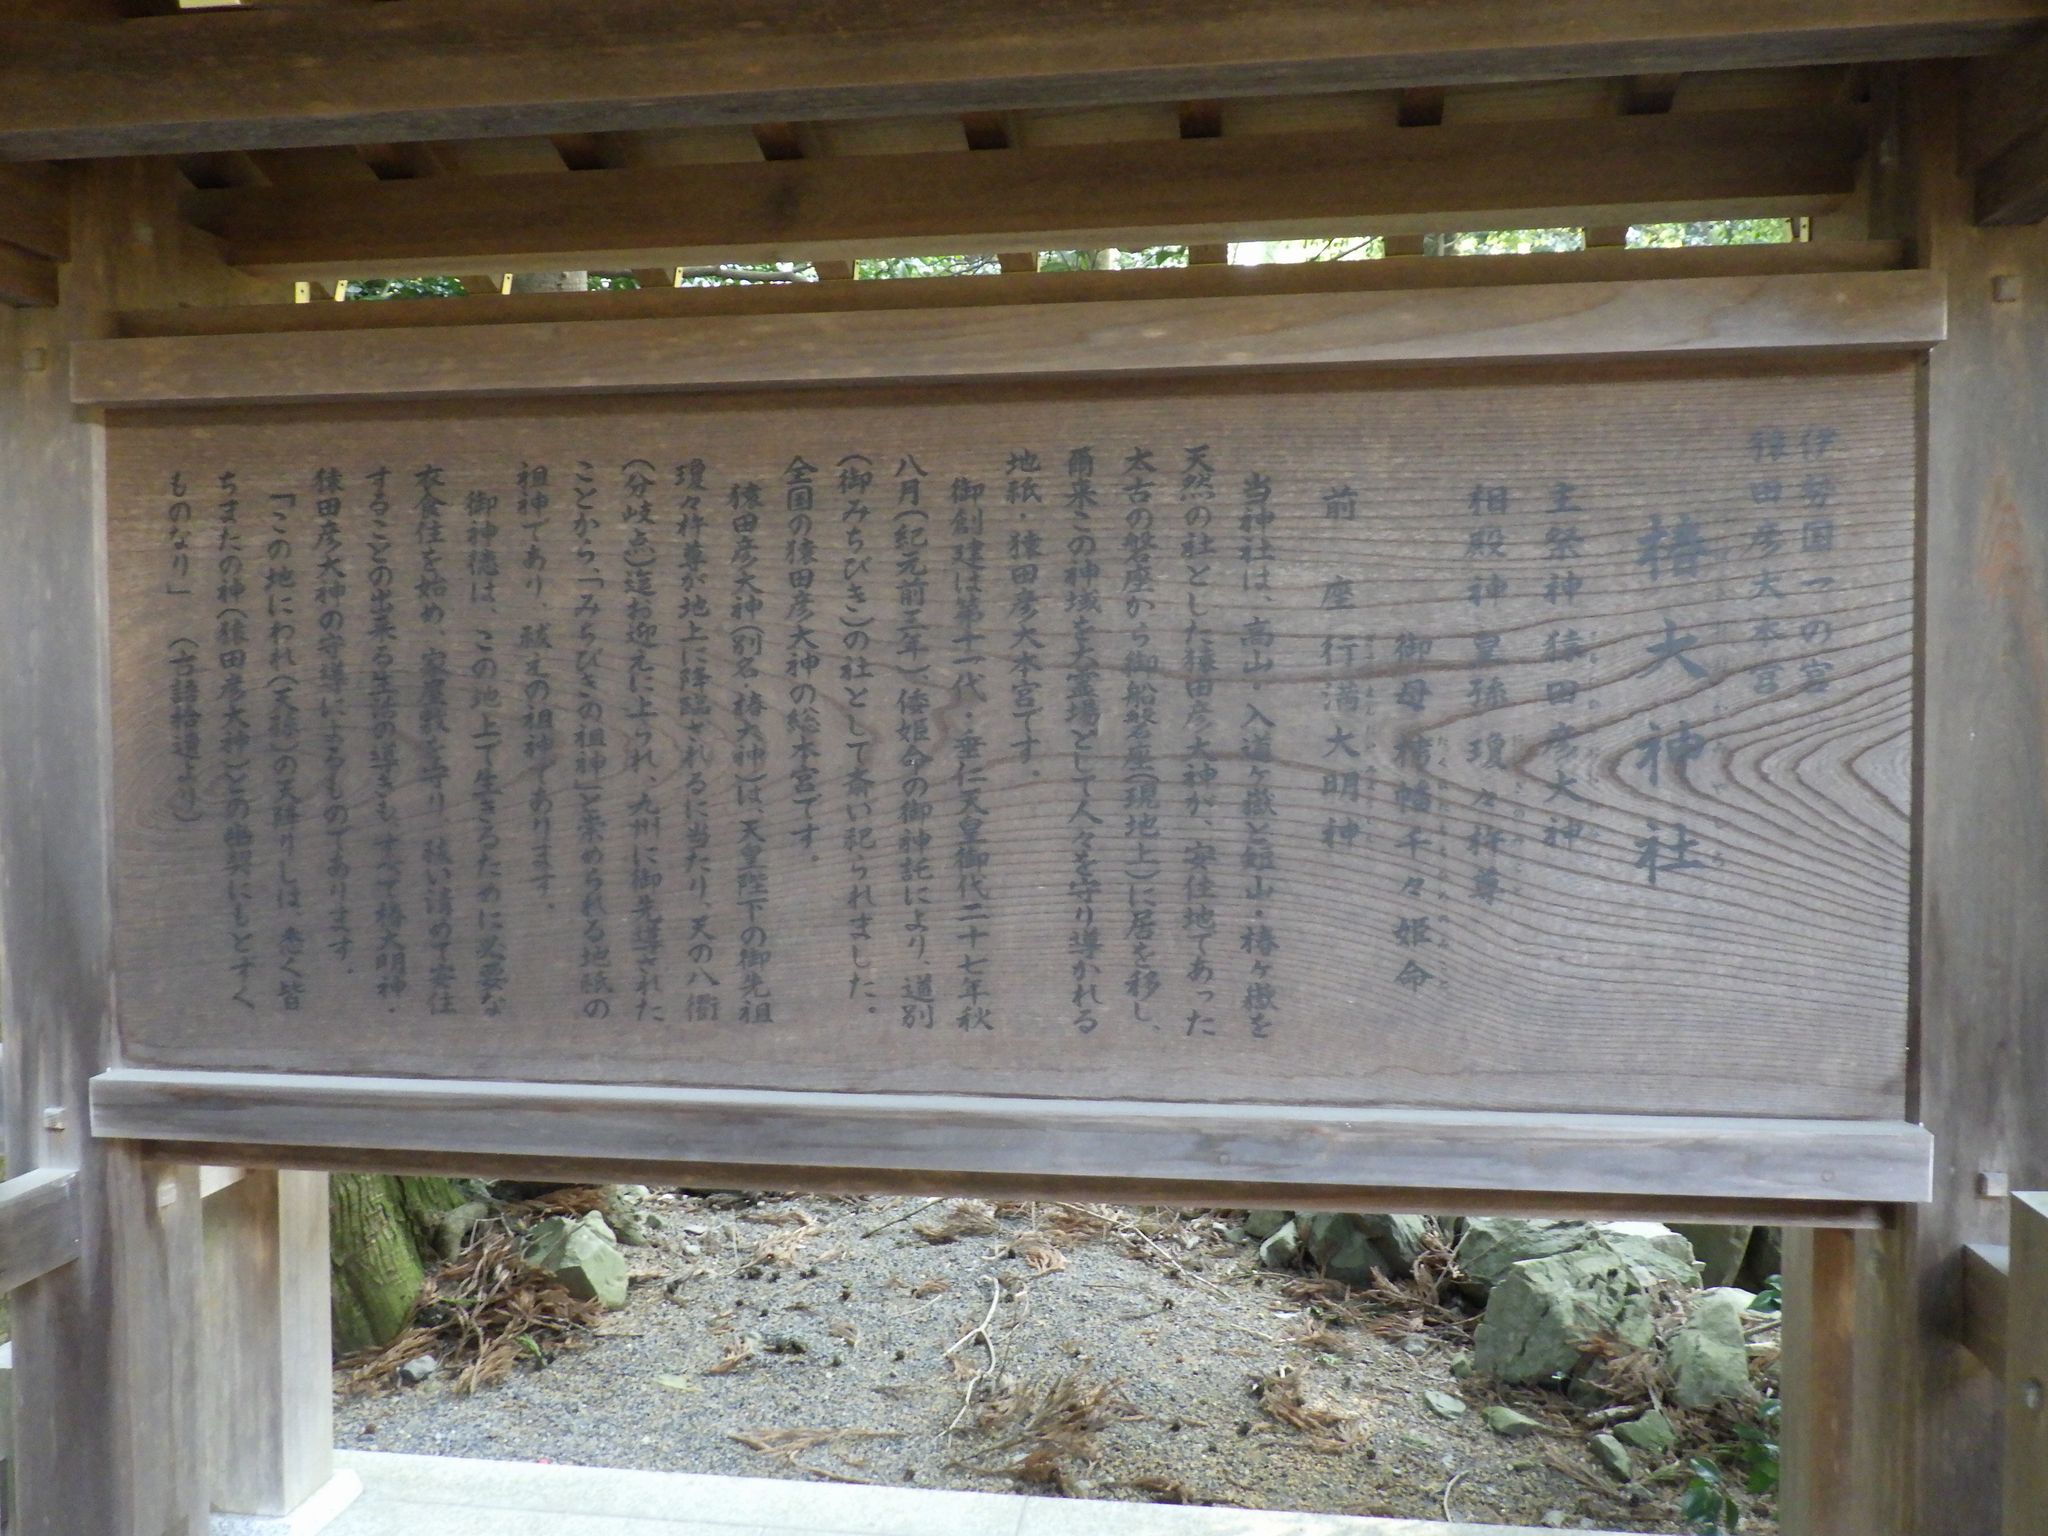 伊勢国一の宮
猿田彦大本宮
椿大神社
主祭神 猿田彦大神
相殿神 皇孫瓊々杵尊
御母 栲幡千々姫命
前座 行満大明神
当神社は、高山・入道ヶ嶽と短山・椿ヶ嶽を
天然の社とした猿田彦大神が、安住地であった
太古の磐座から御船磐座(現地上)に居を移し、
爾来この神域を大霊場として人々を守り導かれる
地祇・猿田彦大本宮です。
御創建は第十一代・垂仁天皇御代二十七年秋
八月(紀元前三年)、倭姫命の御神託により、道別
(御みちびき)の社として斎い祀られました。
全国の猿田彦大神の総本宮です。
猿田彦大神(別名・椿大神)は、天皇陛下の御先祖
瓊々杵尊が地上に降臨されるに当たり、天の八衢
(分岐点)迄お迎えに上られ、九州に御先導された
ことから、「みちびきの祖神」と崇められる地祇の
祖神であり、祓えの祖神であります。
御神徳は、この地上で生きるために必要な
衣食住を始め、家屋敷を守り、祓い清めて安住
することの出来る生活の導きも、すべて椿大明神・
猿田彦大神の守導によるものであります。
「この地にわれ(天孫)の天降りしは、悉く皆
ちまたの神(猿田彦大神)との幽契にもとずく
ものなり」 (古語拾遺より)